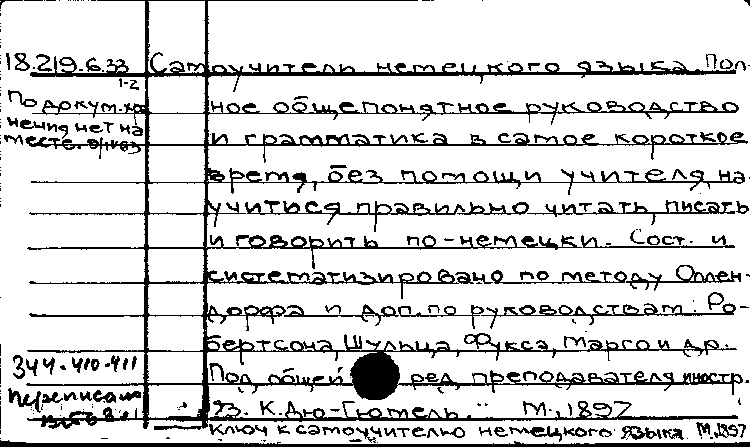 18.219.6.33 Самоучитель немецкого языка. Пол-
1-2
По докум. хра ное общепонятное руководство
нения нет на и грамматика в самое короткое
месте.
время, без помощи учителя, на-
учиться правильно читать, писать
и говорить по-немецки. Сост. и
систематизировано по методу Оллен-
дорфа и доп. по руководствам: Ро-
бертсона, Шульца, Фукса, Марго и др.
344-410-411 Под общей ред. преподавателя иностр.
Переписана яз. К. Дю-Гютель. М., 1897
Ключ к самоучителю немецкого языка М, 1897